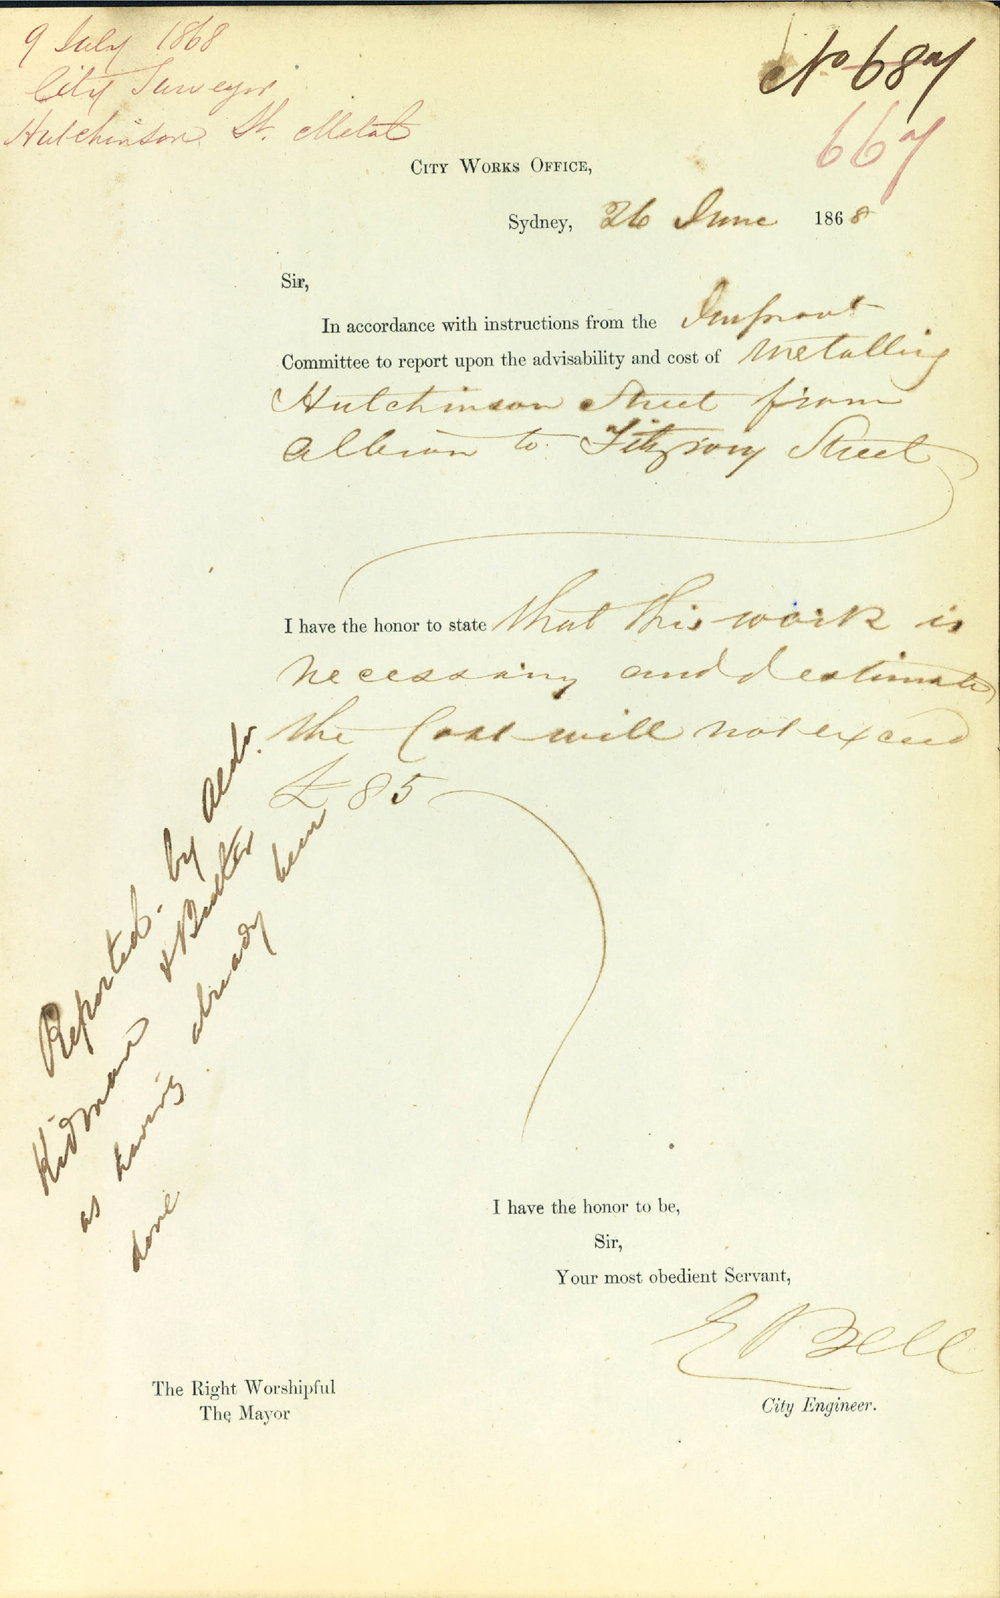 9 July 1868
City Surveyor
Hutchinson St. Metal
No 687
667
CITY WORKS OFFICE,
Sydney, 26 June 1868
Sir,
In accordance with instructions from the Improvt
Committee to report upon the advisability and cost of Metalling
Hutchinson Street from
Albion to Fitzroy Street
I have the honor to state that this work is
necessary and I estimate
the Cost will not exceed
£85
Reported by Aldn.
Kidman & Butler
as having already been
done
I have the honor to be,
Sir,
Your most obedient Servant,
E Bell
City Engineer.
The Right Worshipful
The Mayor